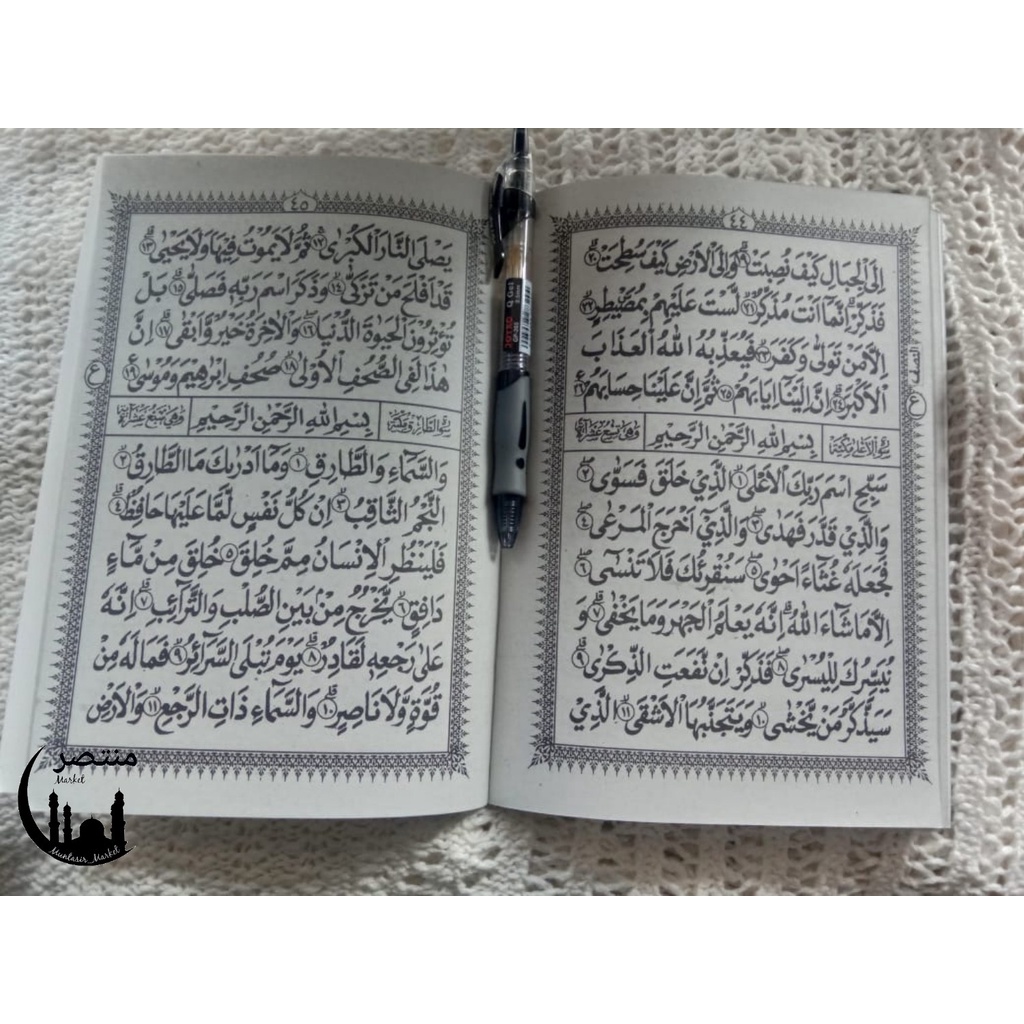 ٤٤
إِلَى الْجِبَالِ كَيْفَ نُصِبَتْ ١٩ وَإِلَى الْأَرْضِ كَيْفَ سُطِحَتْ ٢٠
فَذَكِّرْ إِنَّمَا أَنْتَ مُذَكِّرٌ ٢١ لَسْتَ عَلَيْهِمْ بِمُصَيْطِرٍ ٢٢
إِلَّا مَنْ تَوَلَّى وَكَفَرَ ٢٣ فَيُعَذِّبُهُ اللّٰهُ الْعَذَابَ
الْأَكْبَرَ ٢٤ إِنَّ إِلَيْنَا إِيَابَهُمْ ٢٥ ثُمَّ إِنَّ عَلَيْنَا حِسَابَهُمْ ٢٦
النصف
ع
بِسْمِ اللّٰهِ الرَّحْمٰنِ الرَّحِيْمِ
سَبِّحِ اسْمَ رَبِّكَ الْأَعْلَى ١ الَّذِي خَلَقَ فَسَوّٰى ٢
وَالَّذِي قَدَّرَ فَهَدٰى ٣ وَالَّذِيٓ أَخْرَجَ الْمَرْعٰى ٤
فَجَعَلَهُ غُثَآءً أَحْوٰى ٥ سَنُقْرِئُكَ فَلَا تَنْسٰىٓ ٦
إِلَّا مَا شَآءَ اللّٰهُ إِنَّهُ يَعْلَمُ الْجَهْرَ وَمَا يَخْفٰى ٧ وَ
نُيَسِّرُكَ لِلْيُسْرٰى ٨ فَذَكِّرْ إِنْ نَّفَعَتِ الذِّكْرٰى ٩
سَيَذَّكَّرُ مَنْ يَّخْشٰى ١٠ وَيَتَجَنَّبُهَا الْأَشْقَى ١١ الَّذِي
٤٥
يَصْلَى النَّارَ الْكُبْرٰى ١٢ ثُمَّ لَا يَمُوْتُ فِيْهَا وَلَا يَحْيٰى ١٣
قَدْ أَفْلَحَ مَنْ تَزَكّٰى ١٤ وَذَكَرَ اسْمَ رَبِّهِ فَصَلّٰى ١٥ بَلْ
تُؤْثِرُوْنَ الْحَيٰوةَ الدُّنْيَا ١٦ وَالْآخِرَةُ خَيْرٌ وَّأَبْقٰى ١٧ إِنَّ
هٰذَا لَفِى الصُّحُفِ الْأُوْلٰى ١٨ صُحُفِ إِبْرٰهِيْمَ وَمُوْسٰى ١٩
ع
بِسْمِ اللّٰهِ الرَّحْمٰنِ الرَّحِيْمِ
وَالسَّمَآءِ وَالطَّارِقِ ١ وَمَآ أَدْرٰىكَ مَا الطَّارِقُ ٢
النَّجْمُ الثَّاقِبُ ٣ إِنْ كُلُّ نَفْسٍ لَّمَّا عَلَيْهَا حَافِظٌ ٤
فَلْيَنْظُرِ الْإِنْسَانُ مِمَّ خُلِقَ ٥ خُلِقَ مِنْ مَّآءٍ
دَافِقٍ ٦ يَّخْرُجُ مِنْ بَيْنِ الصُّلْبِ وَالتَّرَآئِبِ ٧ إِنَّهُ
عَلٰى رَجْعِهِ لَقَادِرٌ ٨ يَوْمَ تُبْلَى السَّرَآئِرُ ٩ فَمَا لَهُ مِنْ
قُوَّةٍ وَّلَا نَاصِرٍ ١٠ وَالسَّمَآءِ ذَاتِ الرَّجْعِ ١١ وَالْأَرْضِ
JOYKO
Q Gel
منتصر
Market
Muntasir_Market